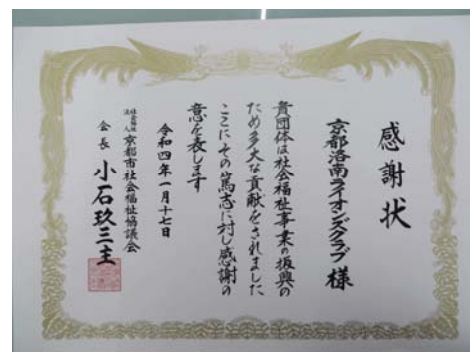 感謝状
京都洛南ライオンズクラブ 様
貴団体は社会福祉事業の振興の
ため多大な貢献をされました
ここにその篤志に対し感謝の
意を表します
令和四年一月十七日
社会福祉法人 京都市社会福祉協議会
会長 小石玖三主